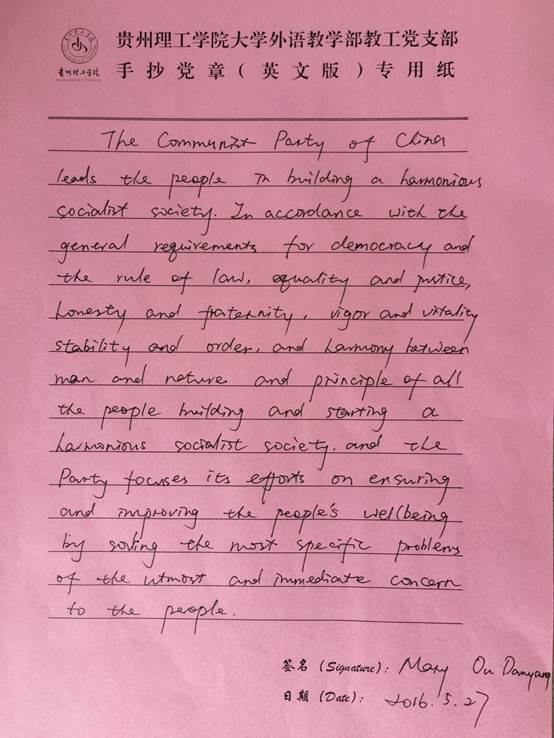 贵州理工学院
贵州理工学院大学外语教学部教工党支部
手抄党章（英文版）专用纸
The Communist Party of China
leads the people in building a harmonious
socialist society. In accordance with the
general requirements for democracy and
the rule of law, equality and justice,
honesty and fraternity, vigor and vitality
stability and order, and harmony between
man and nature and principle of all
the people building and starting a
harmonious socialist society, and the
Party focuses its efforts on ensuring
and improving the people's wellbeing
by solving the most specific problems
of the utmost and immediate concern
to the people.
签名 (Signature): Mary Ou Danyang
日期 (Date): 2016.5.27